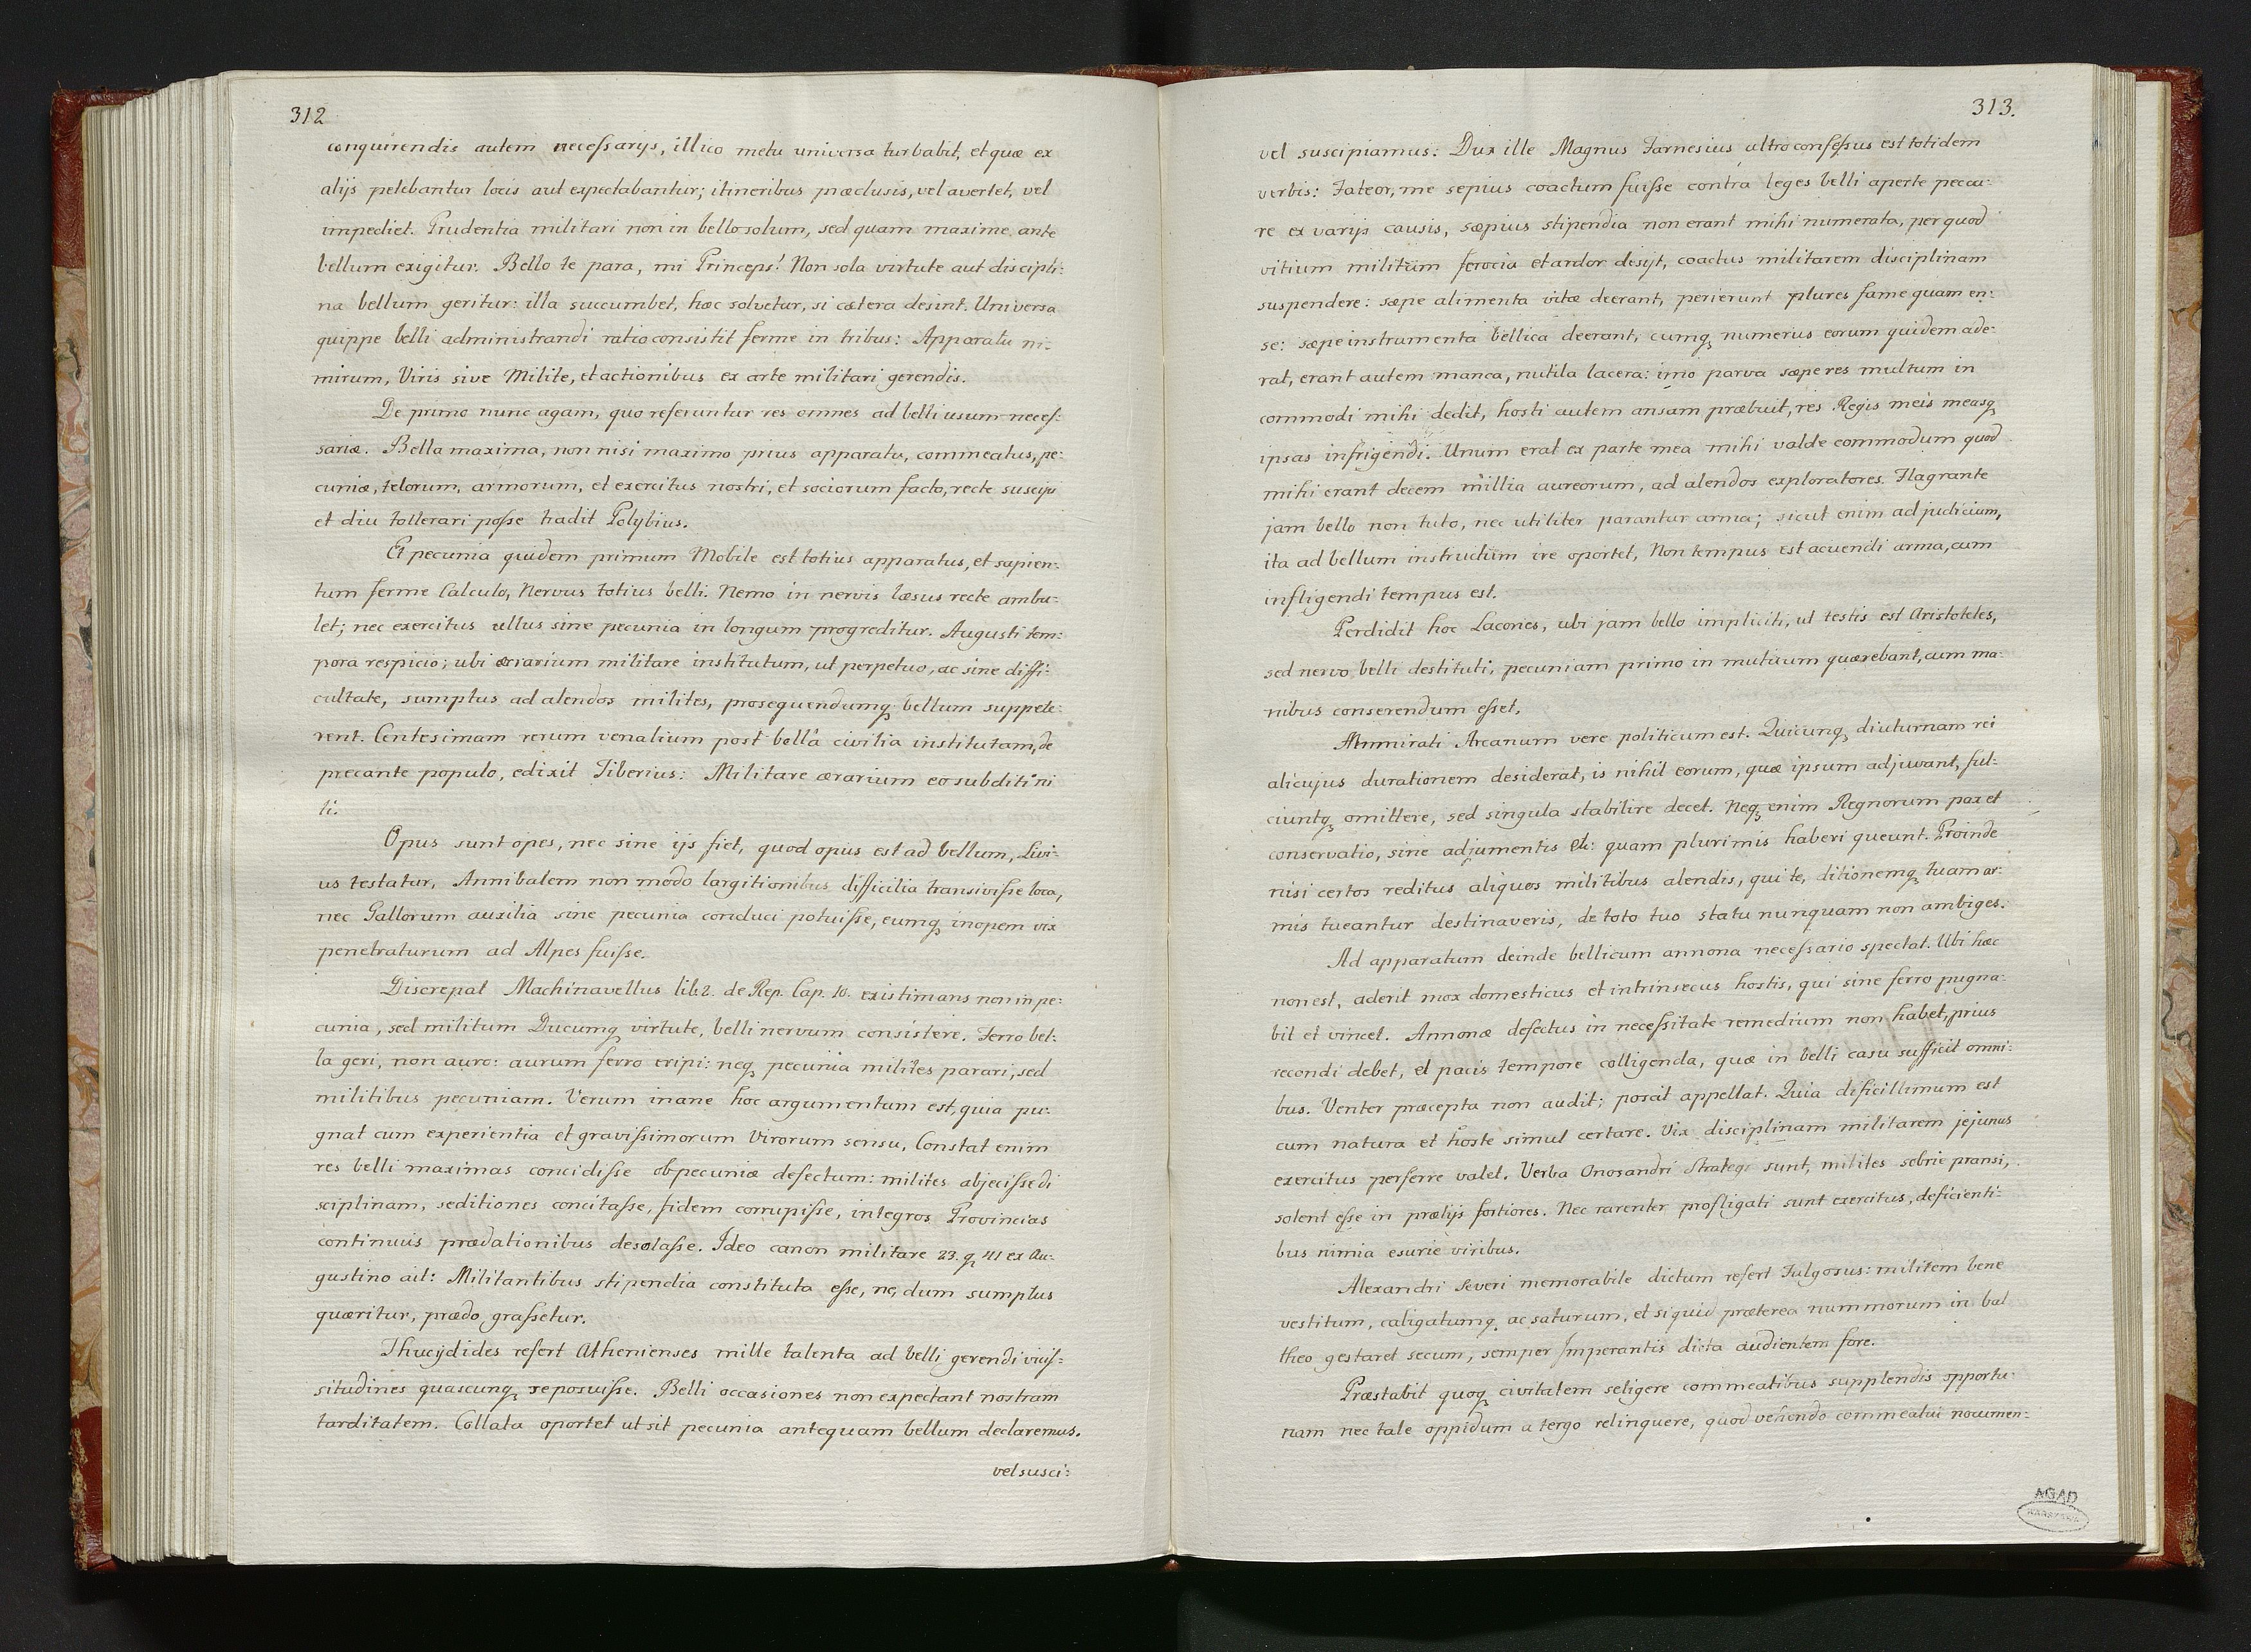 312
conquirendis autem necessarijs, illico metu universa turbabit, et quæ ex
alijs petebantur locis aut expectabantur; itineribus præclusis, vel avertet, vel
impediet. Prudentia militari non in bello solum, sed quam maxime ante
bellum exigitur. Bello te para, mi Princeps! Non sola virtute aut discipli:
na bellum geritur: illa succumbet, hæc solvetur, si cætera desint. Universa
quippe belli administrandi ratio consistit ferme in tribus: Apparatu ni:
mirum, Viris sive Milite, et actionibus ex arte militari gerendis.
De primo nunc agam, quo referuntur res omnes ad belli usum neces:
sariæ. Bella maxima, non nisi maximo prius apparatu, commeatus, pe:
cuniæ, telorum, armorum, et exercitus nostri, et sociorum facto, recte suscipi
et diu tollerari posse tradit Polÿbius.
Et pecunia quidem primum Mobile est totius apparatus, et sapien:
tum ferme Calculo, Nervus totius belli. Nemo in nervis læsus recte ambu:
let; nec exercitus ullus sine pecunia in longum progreditur. Augusti tem:
pora respicio; ubi ærarium militare institutum, ut perpetuo, ac sine diffi:
cultate, sumptus ad alendos milites, prosequendumq bellum suppete:
rent. Centesimam rerum venalium post bella civilia institutam, de
precante populo, edixit Tiberius: Militare ærarium eo subditi ni
ti.
Opus sunt opes, nec sine ijs fiet, quod opus est ad bellum, Livi:
us testatur, Annibalem non modo largitionibus difficilia transivisse loca,
nec Gallorum auxilia sine pecunia conduci potuisse, eumq inopem vix
penetraturum ad Alpes fuisse.
Discrepat Machiavellus lib. 2. de Rep. Cap. 10. existimans non in pe:
cunia, sed militum Ducumq virtute, belli nervum consistere. Ferro bel:
la geri, non auro: aurum ferro eripi: neq pecunia milites parari, sed
militibus pecuniam. Verum inane hoc argumentum est, quia pu:
gnat cum experientia et gravissimorum Virorum sensu, Constat enim
res belli maximas concidisse ob pecuniæ defectum: milites abjecisse di
sciplinam, seditiones concitasse, fidem corrupisse, integros Provincias
continuis prædationibus desolasse. Ideo canon militare 23. q 41 ex Au:
gustino ait: Militantibus stipendia constituta esse, ne, dum sumptus
quæritur, prædo grassetur.
Thucÿdides refert Athenienses mille talenta ad belli gerendi vicis:
situdines quascunq reposuisse. Belli occasiones non expectant nostram
tarditatem. Collata oportet ut sit pecunia antequam bellum declaremus.
vel susci:
313.
vel suscipiamus: Dux ille Magnus Farnesius ultro confessus est totidem
verbis: Fateor, me sepius coactum fuisse contra leges belli aperte pecca:
re ex varijs causis, sæpius stipendia non erant mihi numerata, per quod
vitium militum ferocia et ardor desijt, coactus militarem disciplinam
suspendere: sæpe alimenta vitæ deerant, perierunt plures fame quam en:
se: sæpe instrumenta bellica deerant, cumq numerus eorum quidem ade:
rat, erant autem manca, nutila lacera: imo parva sæpe res multum in
commodi mihi dedit, hosti autem ansam præbuit, res Regis meis measq
ipsas infrigendi. Unum erat ex parte mea mihi valde commodum quod
mihi erant decem millia aureorum, ad alendos exploratores. Flagrante
jam bello non tuto, nec utiliter parantur arma; sicut enim ad judicium,
ita ad bellum instructum ire oportet, Non tempus est acuendi arma, cum
infligendi tempus est.
Perdidit hoc Lacones, ubi jam bello impliciti, ut testis est Aristoteles,
sed nervo belli destituti, pecuniam primo in mutuum quærebant, cum ma:
nibus conserendum esset.
Ammirati Arcanum vere politicum est. Quicunq diuturnam rei
alicujus durationem desiderat, is nihil eorum, quæ ipsum adjuvant, ful:
ciuntq omittere, sed singula stabilire decet. Neq enim Regnorum pax et
conservatio, sine adjumentis et: quam plurimis haberi queunt. Proinde
nisi certos reditus aliquos militibus alendis, qui te, ditionemq tuam ar:
mis tueantur destinaveris, de toto tuo statu nunquam non ambiges.
Ad apparatum deinde bellicum annona necessario spectat. Ubi hæc
non est, aderit mox domesticus et intrinsecus hostis, qui sine ferro pugna:
bit et vincet. Annonæ defectus in necessitate remedium non habet, prius
recondi debet, et pacis tempore colligenda, quæ in belli casu sufficit omni:
bus. Venter præcepta non audit; poscit appellat. Quia dificillimum est
cum natura et hoste simul certare. Vix disciplinam militarem jejunus
exercitus perferre valet. Verba Onosandri Strategi sunt, milites sobrie pransi,
solent esse in prælijs fortiores. Nec rarenter profligati sunt exercitus, deficienti:
bus nimia esurie viribus.
Alexandri Severi memorabile dictum refert Fulgosus: militem bene
vestitum, caligatumq ac saturum, et si quid præterea nummorum in bal
theo gestaret secum, semper Imperantis dicta audientem fore.
Præstabit quoq civitatem seligere commeatibus supplendis opportu:
nam nec tale oppidum a tergo relinquere, quod vehendo commeatui nocumen:
AGAD
WARSZAWA